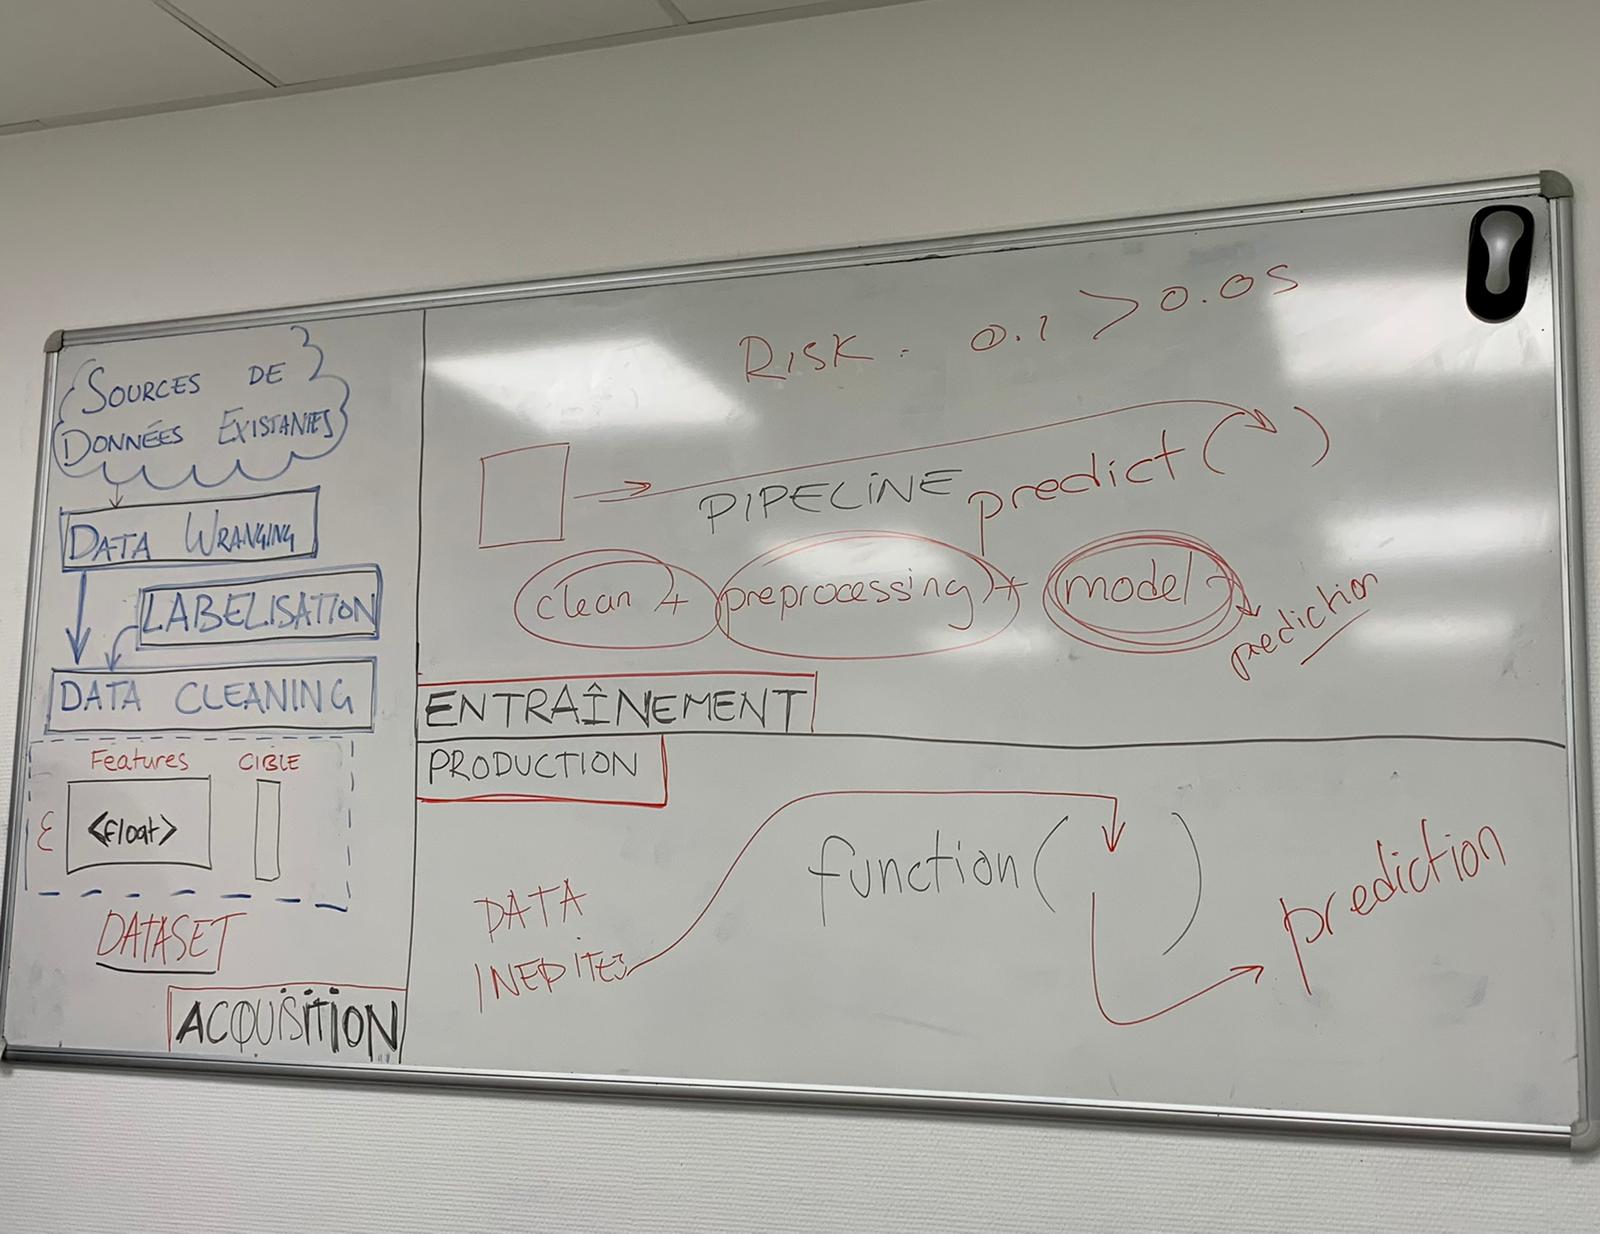 SOURCES DE
DONNÉES EXISTANTES
DATA WRANGING
LABELISATION
DATA CLEANING
Features CIBLE
<float>
DATASET
ACQUISITION
RISK. 0.1 > 0.05
PIPELINE predict ( )
clean + preprocessing + model
prediction
ENTRAÎNEMENT
PRODUCTION
function ( )
prediction
DATA
INEDITES